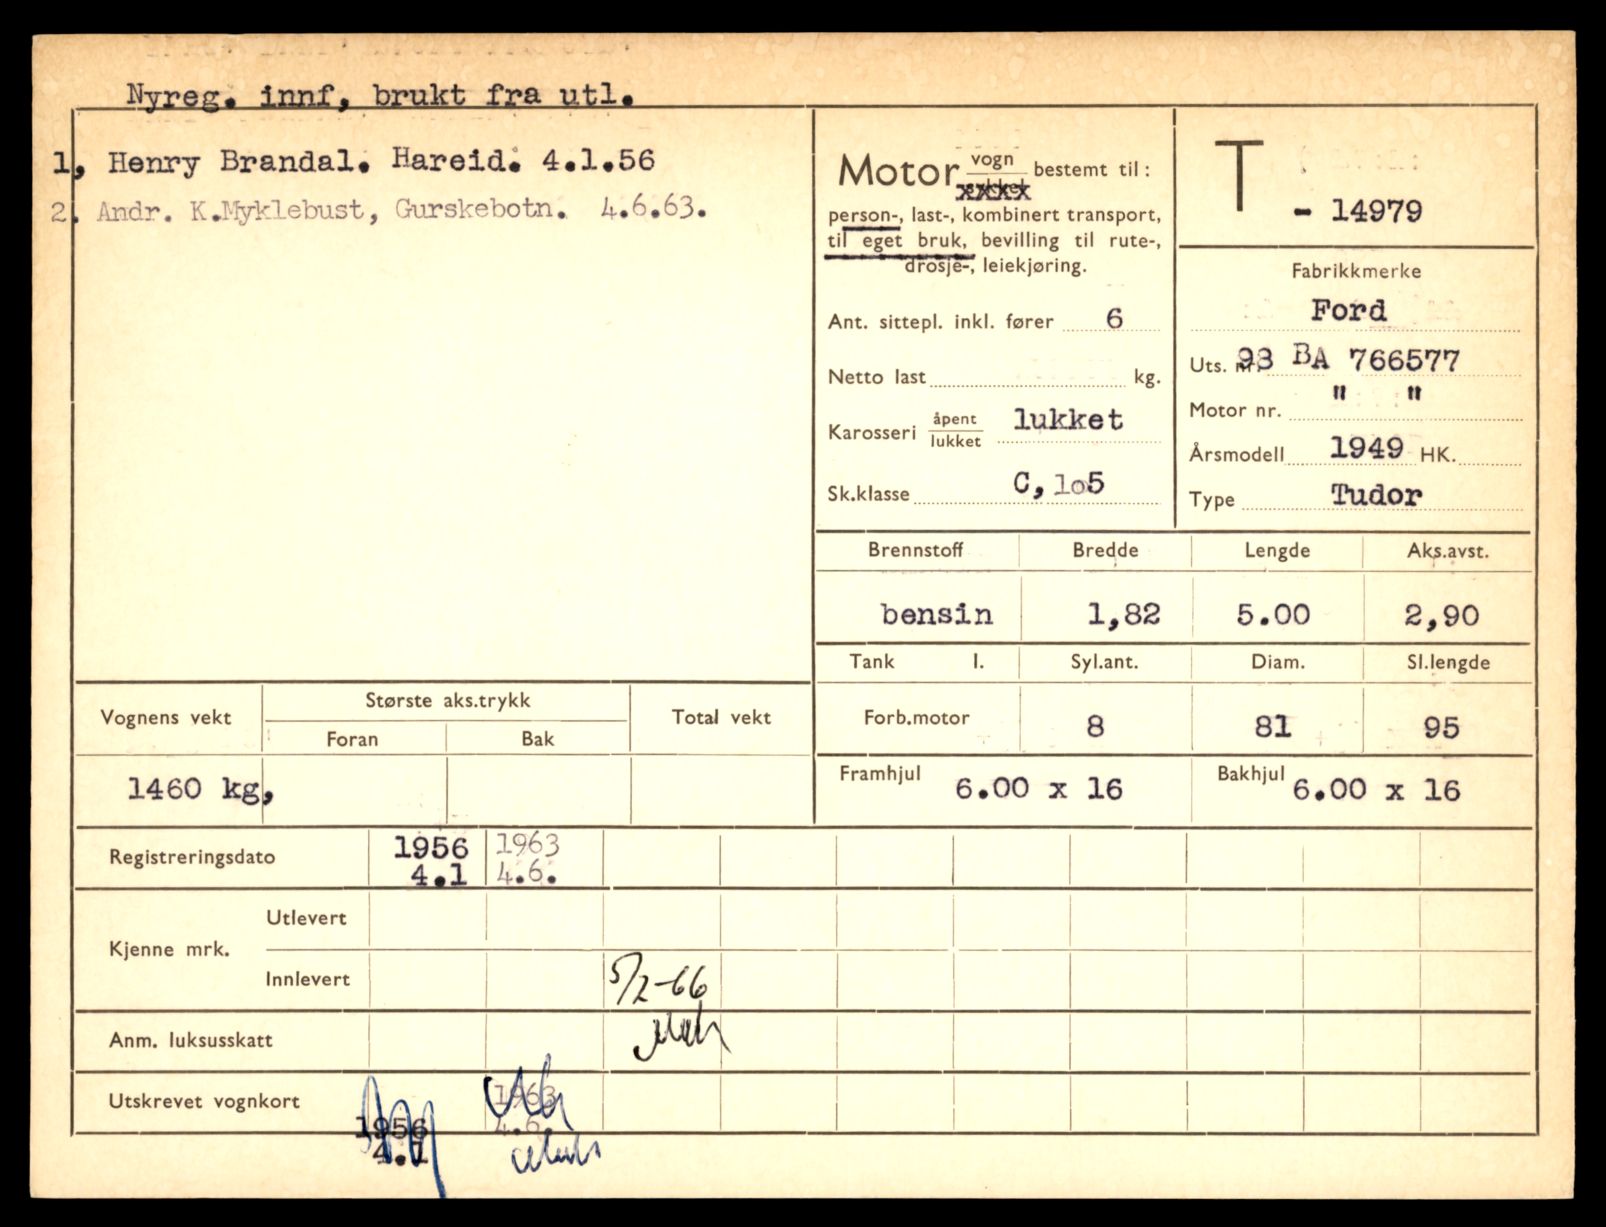 Nyreg. innf, brukt fra utl.
1, Henry Brandal. Hareid. 4.1.56
2. Andr. K.Myklebust, Gurskebotn. 4.6.63.
Motor vogn bestemt til:
xxxx
person-, last-, kombinert transport,
til eget bruk, bevilling til rute-,
drosje-, leiekjøring.
Ant. sittepl. inkl. fører 6
Netto last kg.
Karosseri åpent lukket
lukket
Sk.klasse C, 1o5
T - 14979
Fabrikkmerke
Ford
Uts. nr. 98 BA 766577
Motor nr. " "
Årsmodell 1949 HK.
Type Tudor
Brennstoff Bredde Lengde Aks.avst.
bensin 1,82 5.00 2,90
Tank l. Syl.ant. Diam. Sl.lengde
Forb.motor 8 81 95
Framhjul 6.00 x 16 Bakhjul 6.00 x 16
Vognens vekt Største aks.trykk Total vekt
Foran Bak
1460 kg,
Registreringsdato 1956 1963
4.1 4.6.
Kjenne mrk. Utlevert
Innlevert 5/2-66
Anm. luksusskatt
Utskrevet vognkort 1963
1956 4.6.
4.1